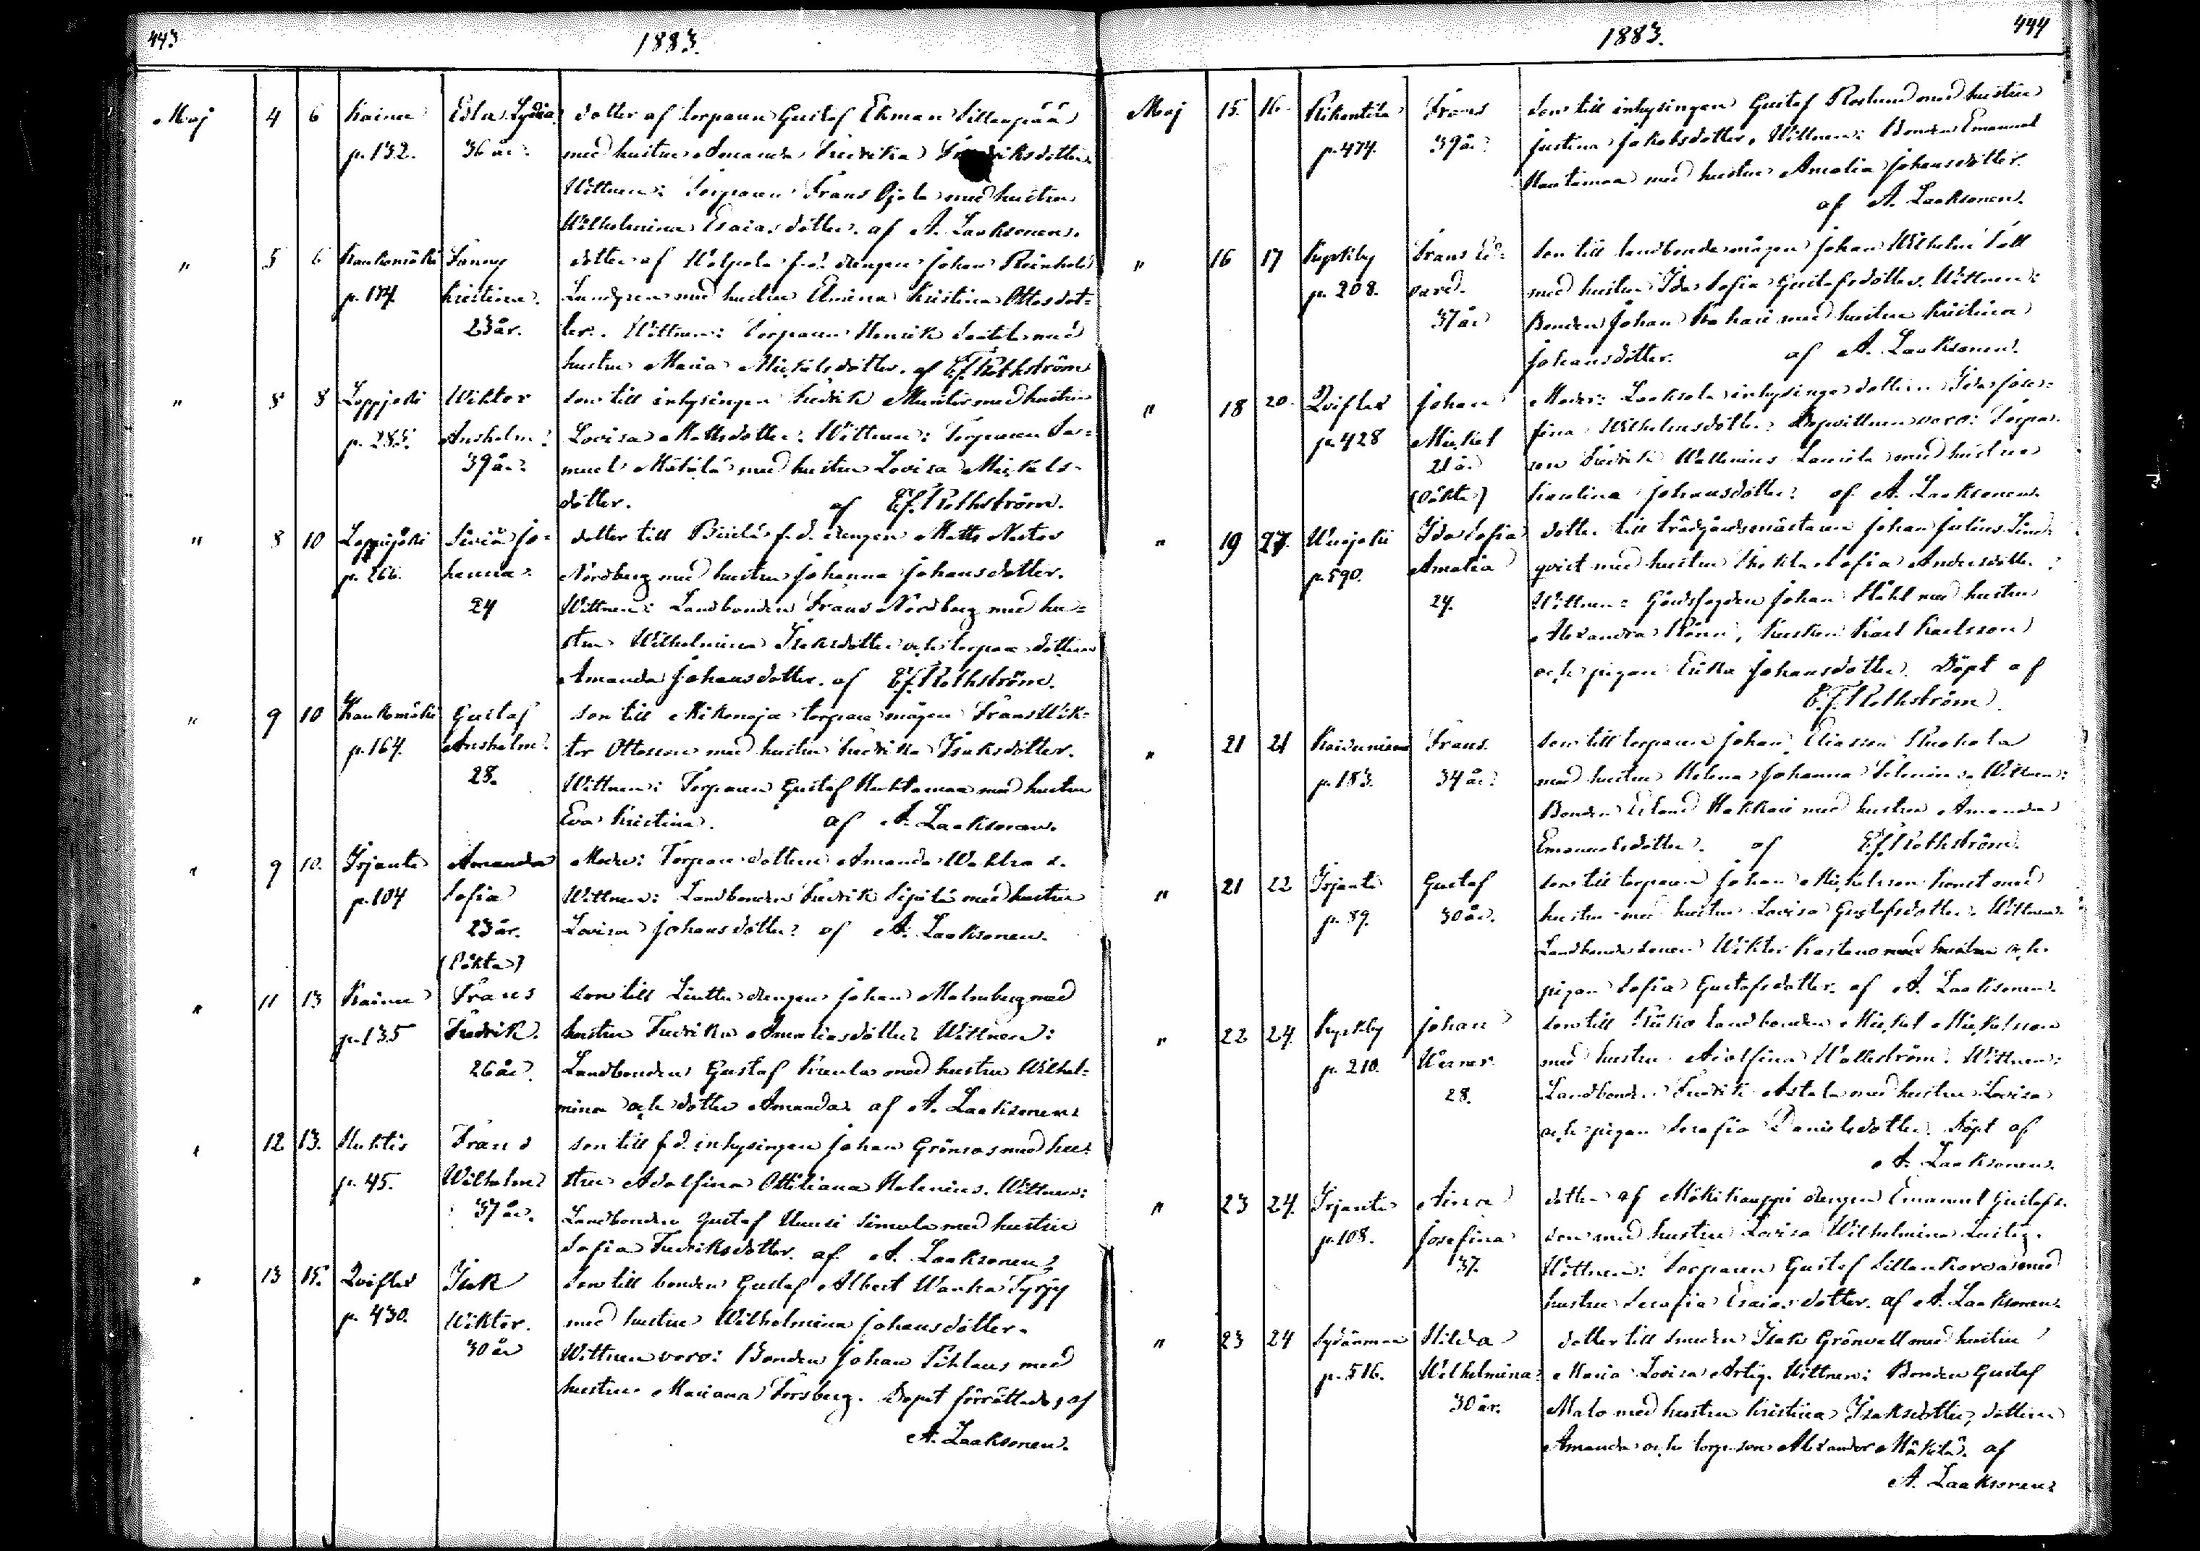 443
1883.
Maj 4 6 Kainu Edla Lydia dotter af torparen Gustaf Ekman Sillanpää
p. 132. 36 år. med hustru Amanda Fredrika Fredriksdotter.
Wittnen: Torparen Frans Ojala med hustru
Wilhelmina Esaiasdotter. af A. Laaksonen.
" 5 6 Kankomäki Fanny dotter af f.d. drengen Johan Reinhold
p. 174. Kristina. Landgren med hustru Elmina Kristina Ottosdot-
23 år. ter. Wittnen: Torparen Henrik med
hustru Maria Mickelsdotter. af E.F. Rothström
" 8 8 Loppijoki Wiktor son till inhysingen Fredrik med hustru
p. 285. Anshelm. Lovisa Mattsdotter. Wittnen: Torparen Sa-
39 år. muel Mäkilä med hustru Lovisa Mickels-
dotter. af E.F. Rothström.
" 8 10 Loppijoki Jo- dotter till f.d. drengen Matts Nestor
p. 266. hanna. Nordberg med hustru Johanna Johansdotter.
24 Wittnen: Landbonden Frans Nordberg med hu-
stru Wilhelmina Isaksdotter och torparedottren
Amanda Johansdotter. af E.F. Rothström.
" 9 10 Kankomäki Gustaf son till Mikonoja torparemågen Frans Wik-
p. 164. Anshelm. tor Ottosson med hustru Fredrika Isaksdotter.
28. Wittnen: Torparen Gustaf Huhtamaa med hustru
Eva Kristina. af A. Laaksonen.
" 9 10. Irjanta Amanda Moder: Torparedottren Amanda
p. 104 Sofia Wittnen: Landbonden Fredrik Sipilä med hustru
23 år. Lovisa Johansdotter. af A. Laaksonen.
(Oäkta)
" 11 13 Kainu Frans son till drengen Johan Malmberg med
p. 135 Fredrik. hustru Fredrika Amaliasdotter. Wittnen:
26 år. Landbonden Gustaf med hustru Wilhel-
mina och dotter Amanda. af A. Laaksonen.
" 12 13. Huhtis Frans son till f.d. inhysingen Johan Grönroos med hu-
p. 45. Wilhelm stru Adolfina Ottiliana Helenius. Wittnen:
37 år. Landbonden Gustaf Uusi Simula med hustru
Sofia Fredriksdotter. af A. Laaksonen.
" 13 15. Qviflax Isak son till bonden Gustaf Albert Wanha Tyrpy
p. 430. Wiktor. med hustru Wilhelmina Johansdotter.
30 år Wittnen voro: Bonden Johan Pihlaus med
hustru Mariana Forsberg. Dopet förrättades af
A. Laaksonen.
444
1883.
Maj 15. 16. Frans son till inhysingen Gustaf Roslund med hustru
p. 474. 39 år. Justina Jakobsdotter. Wittnen: Bonden Emanuel
Hautamaa med hustru Amalia Johansdotter.
af A. Laaksonen.
" 16 17 Kyrkby Frans Ed- son till landbondemågen Johan Wilhelm
p. 208. vard. med hustru Ida Sofia Gustafsdotter. Wittnen:
37 år Bonden Johan med hustru Kristina
Johansdotter. af A. Laaksonen.
" 18 20. Qviflax Johan Moder: inhysingedottren Ida Jose-
p. 428 Mickel fina Wilhelmsdotter. Dopwittnen voro: Torpare-
21 år son Fredrik Wallenius med hustru
(Oäkta) Karolina Johansdotter. af A. Laaksonen.
" 19 27. Uusijoki Ida Sofia dotter till trädgårdsmästaren Johan Julius Lind-
p. 590. Amalia qvist med hustru Thekla Sofia Andersdotter.
24. Wittnen: Gårdsfogden Johan Ståhl med hustru
Alexandra, kusken Karl Karlsson
och pigan Erika Johansdotter. Döpt af
E.F. Rothström.
" 21 21 Frans. son till torparen Johan Eliasson Ruohola
p. 183. 34 år. med hustru Helena Johanna Selenius. Wittnen:
Bonden Erland med hustru Amanda
Emanuelsdotter. af E.F. Rothström.
" 21 22 Irjanta Gustaf son till torparen Johan Mickelsson med
p. 89. 30 år. hustru med hustru Lovisa Gustafsdotter. Wittnen:
Landbondesonen Wiktor med hustru och
pigan Sofia Gustafsdotter. af A. Laaksonen.
" 22 24. Kyrkby Johan son till landbonden Mickel Mickelsson
p. 210. Werner. med hustru Adolfina Wallström. Wittnen:
28. Landbond. Fredrik Astala med hustru Lovisa
och pigan Serafia Danielsdotter. Döpt af
A. Laaksonen.
" 23 24. Irjanta Aina dotter af Mäkikauppi drengen Emanuel Gustafs-
p. 108. Josefina son med hustru Lovisa Wilhelmina.
37. Wittnen: Torparen Gustaf Sillankorva med
hustru Serafia Esaiasdotter. af A. Laaksonen.
" 23 24 Sydänmaa Hilda dotter till smeden Isak Grönvall med hustru
p. 516. Wilhelmina. Maria Lovisa Artig. Wittnen: Bonden Gustaf
30 år. Malo med hustru Kristina Isaksdotter, dottren
Amanda och torp. son Alexander Mäkilä. af
A. Laaksonen.